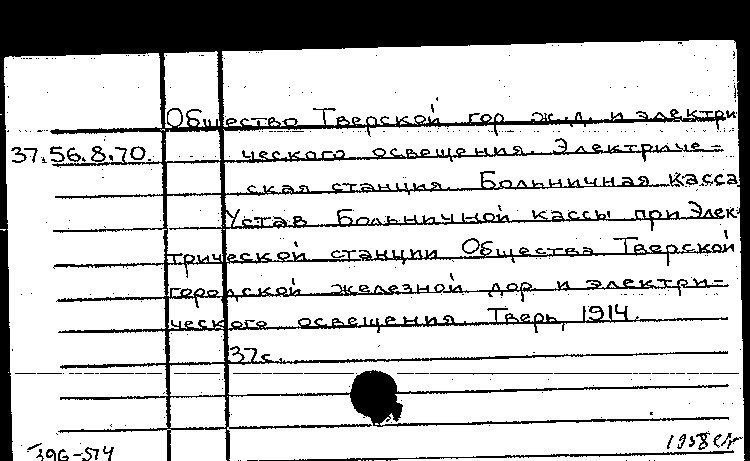 Общество Тверской гор ж.д. и электри
37.56.8.70. ческого освещения. Электриче=
ская станция. Больничная касса
Устав Больничной кассы при Элек
трической станции Общества Тверской
городской железной дор. и электри=
ческого освещения. Тверь, 1914.
37с.
396-574